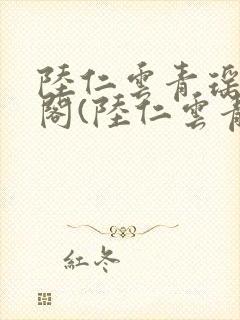 陸仁雲青瑶
閣(陸仁雲青
紅冬